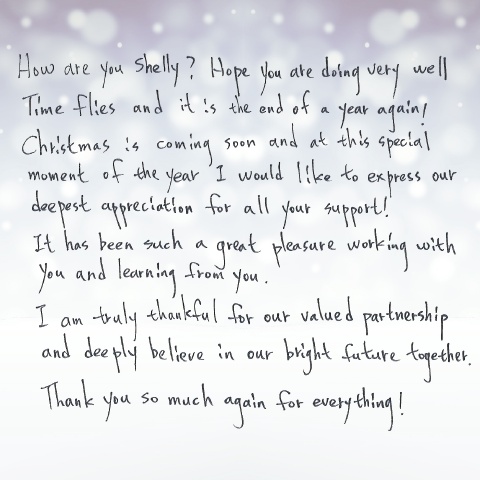 How are you Shelly? Hope you are doing very well
Time flies and it is the end of a year again!
Christmas is coming soon and at this special
moment of the year I would like to express our
deepest appreciation for all your support!
It has been such a great pleasure working with
you and learning from you.
I am truly thankful for our valued partnership
and deeply believe in our bright future together.
Thank you so much again for everything!